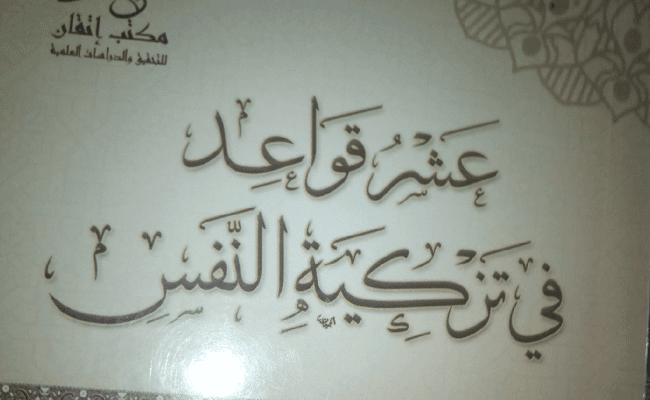 مكتب إتقان
للتحقيق والدراسات العلمية
عَشْرُ قَوَاعِد
فِي تَزْكِيَةِ النَّفْسِ